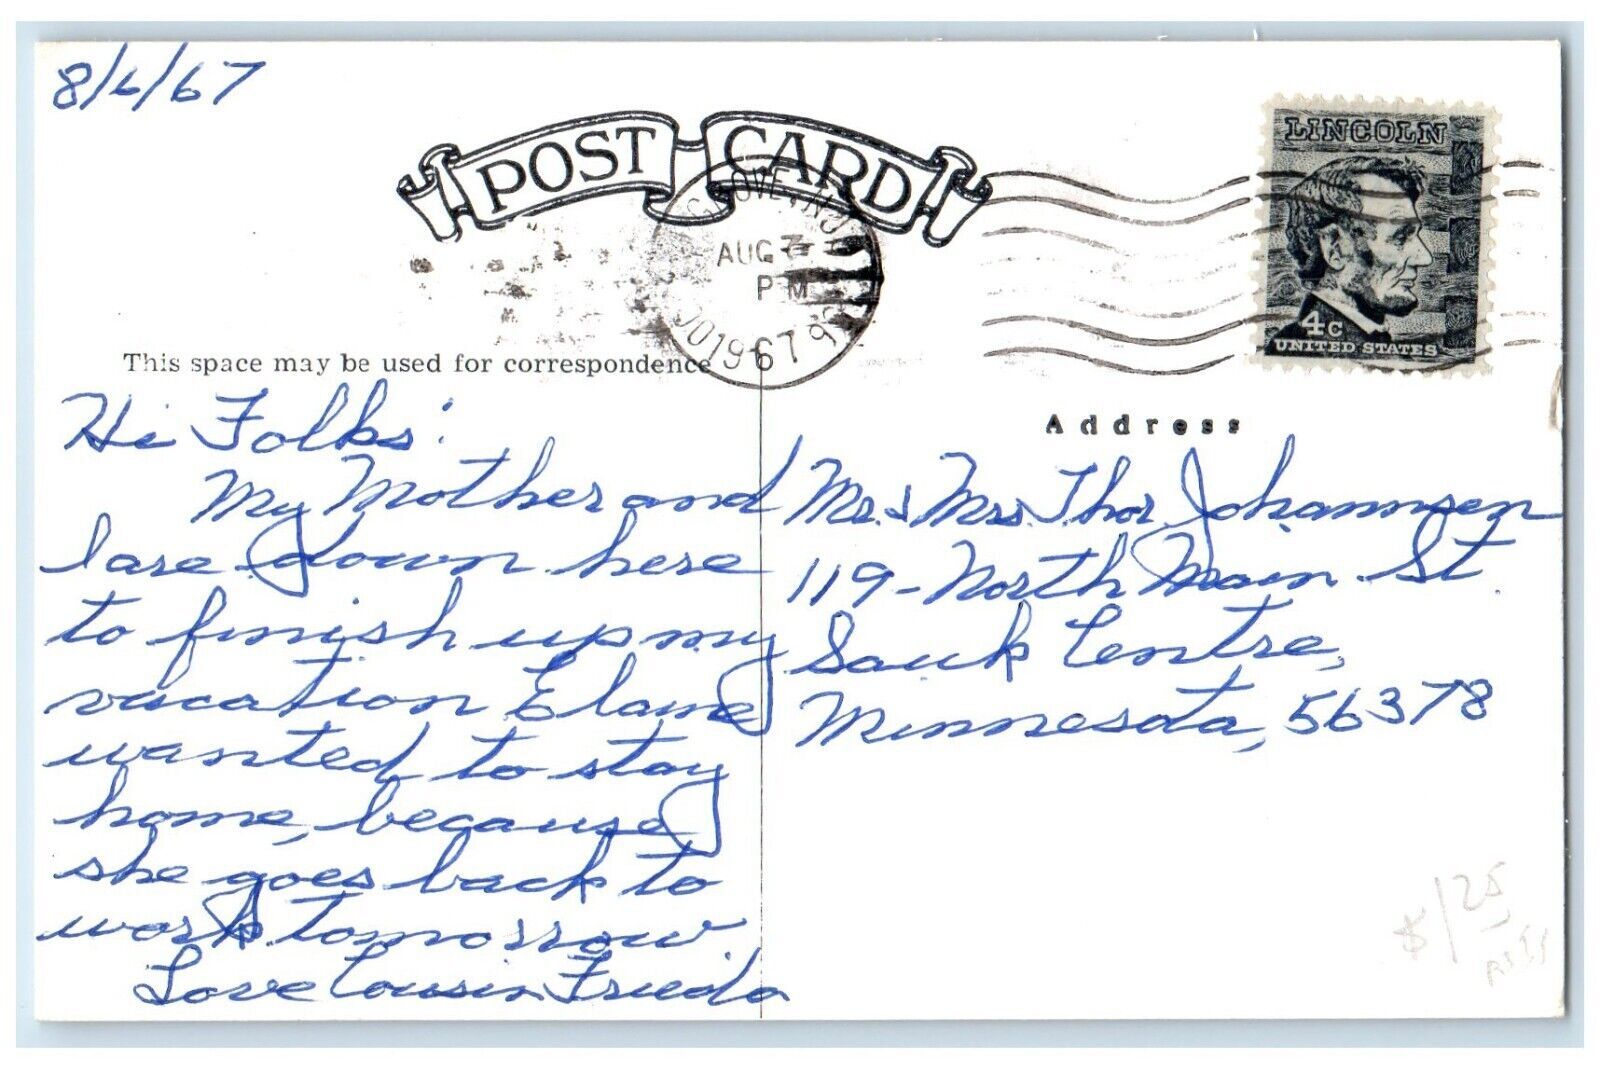 8/6/67
POST CARD
LINCOLN
4c
UNITED STATES
GROVE, NJ
AUG 7
PM
1967
This space may be used for correspondence
Address
Hi Folks:
My Mother and
I are down here
to finish up my
vacation Elaine
wanted to stay
home, because
she goes back to
work tomorrow.
Love Cousin Frieda
Mr. & Mrs. Thor. Johannsen
119 - North Main St.
Sauk Centre,
Minnesota, 56378
$1 25